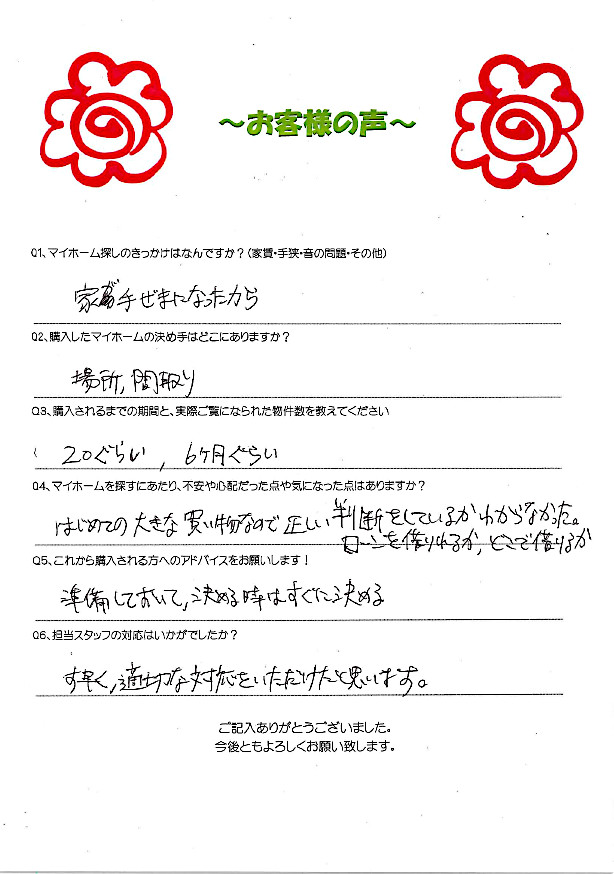 ～お客様の声～
Q1、マイホーム探しのきっかけはなんですか？（家賃・手狭・音の問題・その他）
家が手ぜまになったから
Q2、購入したマイホームの決め手はどこにありますか？
場所，間取り
Q3、購入されるまでの期間と、実際ご覧になられた物件数を教えてください
20ぐらい，6ヶ月ぐらい
Q4、マイホームを探すにあたり、不安や心配だった点や気になった点はありますか？
はじめての大きな買い物なので正しい判断をしているかわからなかった。
ローンを借りれるか，どこで借りるか
Q5、これから購入される方へのアドバイスをお願いします！
準備しておいて，決める時はすぐに決める
Q6、担当スタッフの対応はいかがでしたか？
す早く，適切な対応をいただけたと思います。
ご記入ありがとうございました。
今後ともよろしくお願い致します。